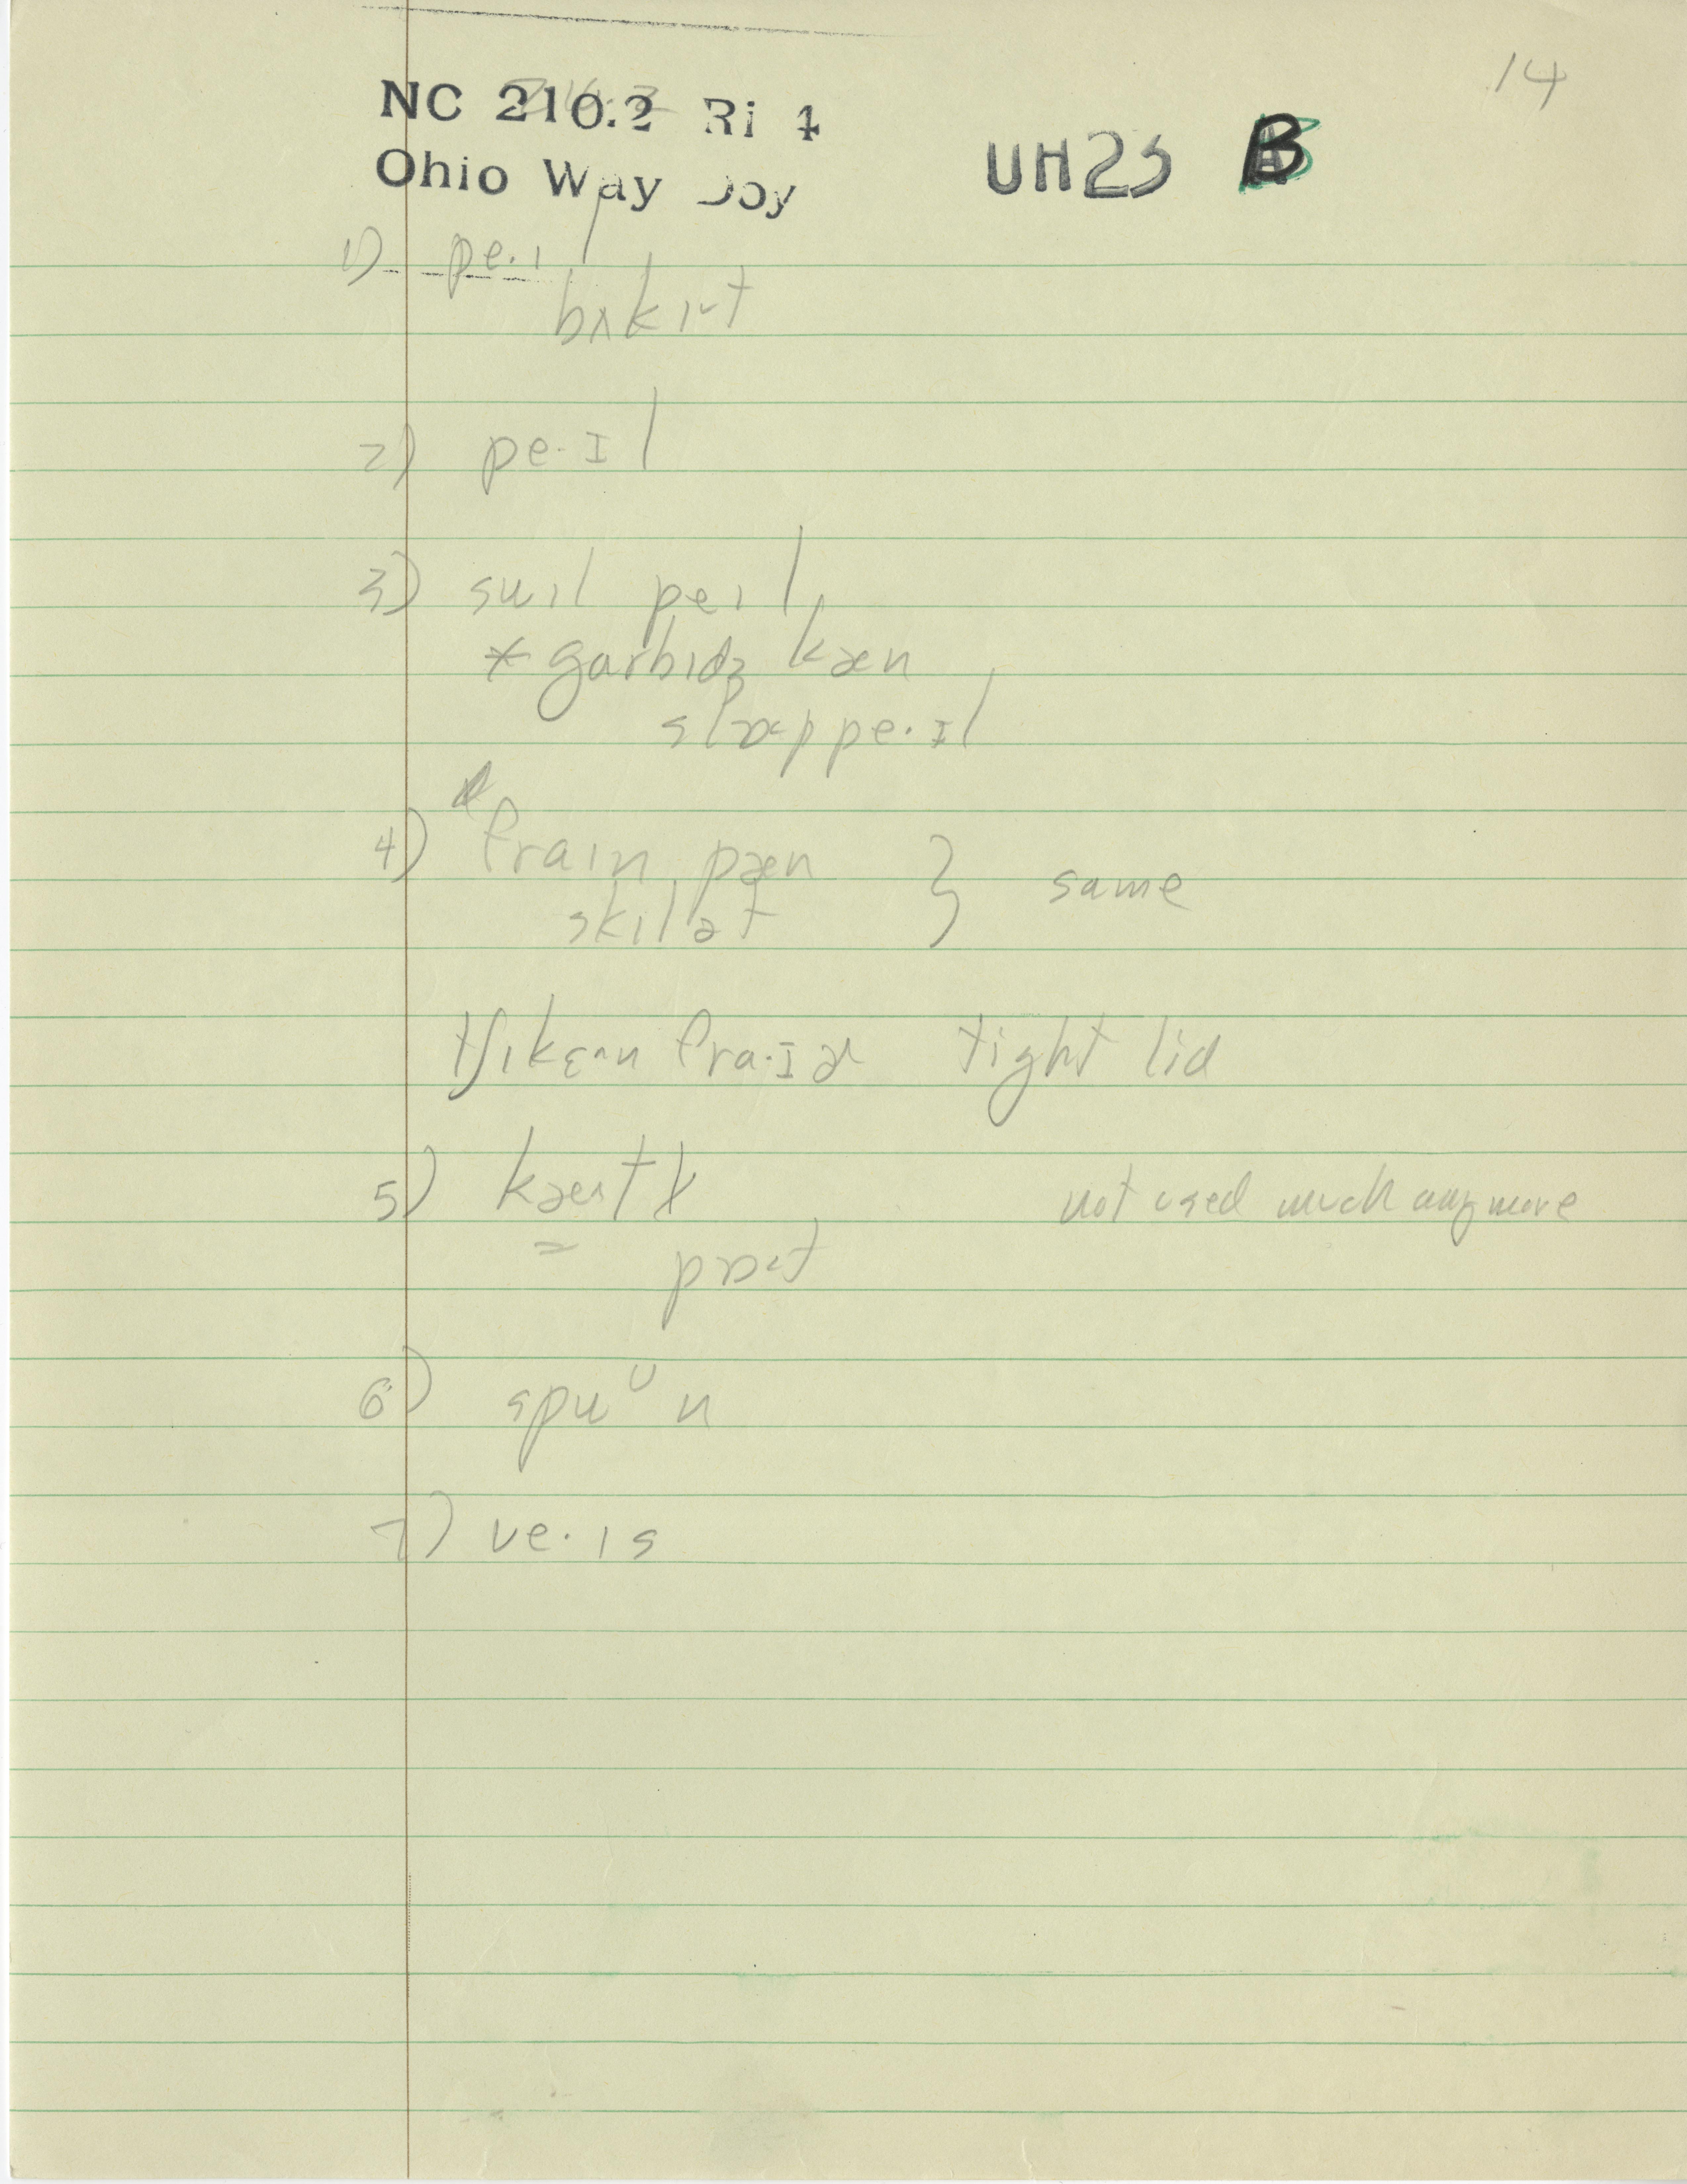 14
NC 210.2 Ri 4
Ohio Way Joy
UH2S B
1) pe·ɪl
bʌkɪ˞t
2) pe·ɪl
3) swɪl peɪl
* garbɪdʒ kæn
slɒppe·ɪl
4) fraɪn pæn } same
skɪlət
tʃɪkɛ^n fra·ɪɚ tight lid
5) kæ^tɫ not used much anymore
= pɒ·t
6) spuᶷn
7) ve·ɪs